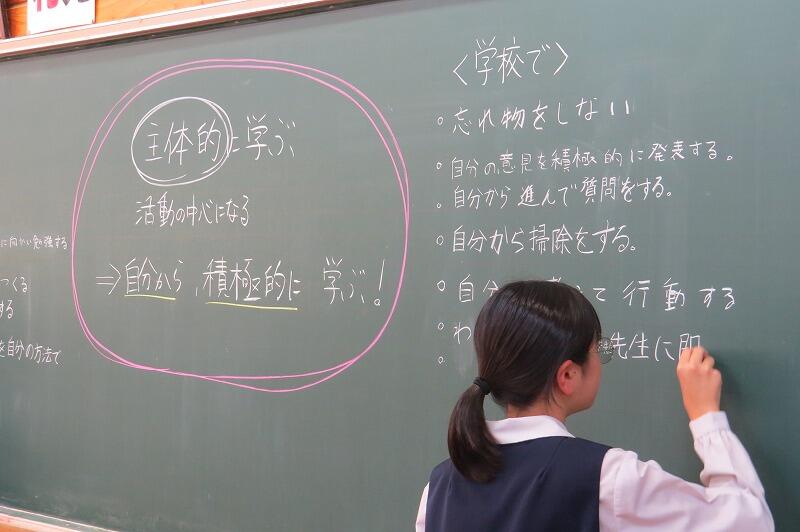 に向かい勉強する
つくる
する
を自分の方法で
主体的に学ぶ
活動の中心になる
⇒自分から、積極的に 学ぶ!
〈学校で〉
○忘れ物をしない
○自分の意見を積極的に発表する。
○自分から進んで質問をする。
○自分から掃除をする。
○自分 て行動する
○わ 先生に
○